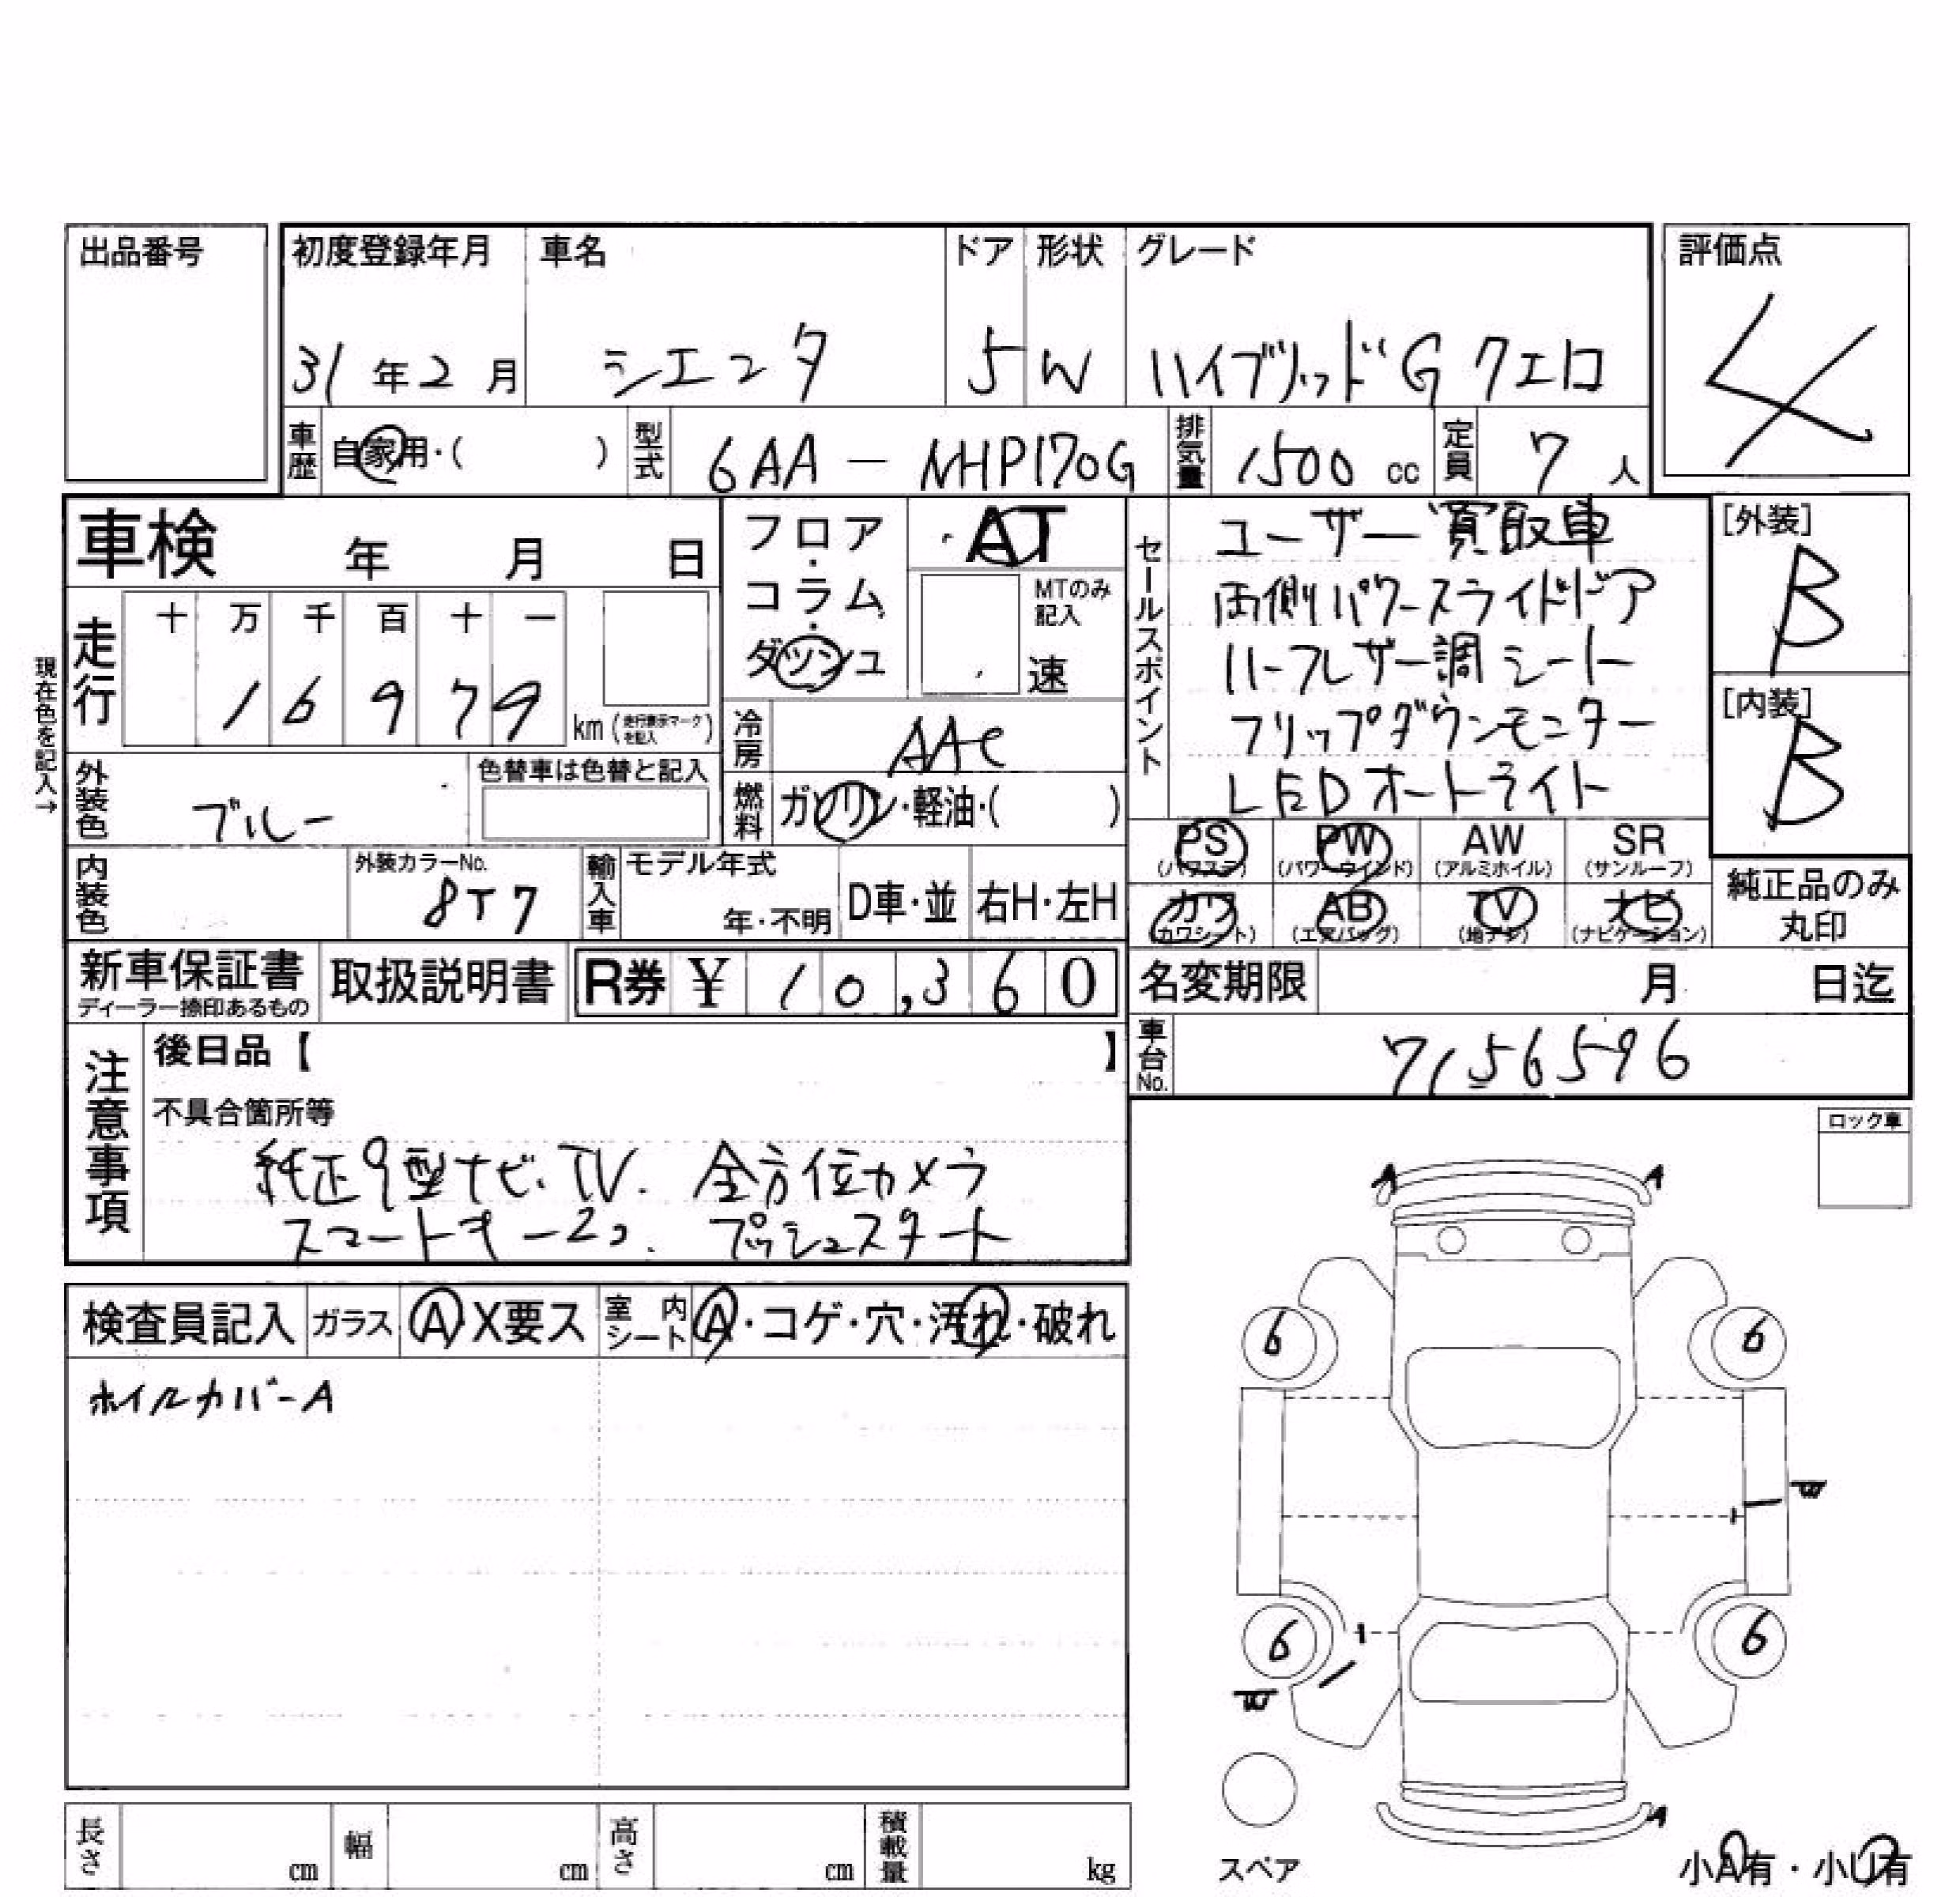 出品番号
初度登録年月 車名 ドア 形状 グレード 評価点
31年2月 シエンタ 5 W ハイブリッドG クエロ 4
車歴 自家用・( ) 型式 6AA - NHP170G 排気量 1500 cc 定員 7 人
車検 年 月 日
フロア・コラム・ダッシュ
AT
MTのみ記入
速
走行 十 万 千 百 十 一
1 6 9 7 9 km (走行表示マークを記入)
現在色を記入→
冷房 AAC
外装色 ブルー 色替車は色替と記入
燃料 ガソリン・軽油・( )
内装色 外装カラーNo. 8T7 輸入車 モデル年式 年・不明 D車・並 右H・左H
新車保証書 ディーラー捺印あるもの 取扱説明書 R券 ¥ 10,360
セールスポイント
ユーザー買取車
両側パワースライドドア
ハーフレザー調シート
フリップダウンモニター
LEDオートライト
[外装] B
[内装] B
PS (パワステ) PW (パワーウインド) AW (アルミホイル) SR (サンルーフ)
カワ (カワシート) AB (エアバッグ) TV (地デジ) ナビ (ナビゲーション)
純正品のみ丸印
名変期限 月 日迄
車台No. 7156596
注意事項 後日品【 】
不具合箇所等
純正9型ナビ、TV. 全方位カメラ
スマートキー2コ. プッシュスタート
ロック車
検査員記入 ガラス A X要ス 室内シート A・コゲ・穴・汚れ・破れ
ホイルカバーA
A A
6 6
W
6 6
W
A
スペア
小A有・小U有
長さ cm 幅 cm 高さ cm 積載量 kg